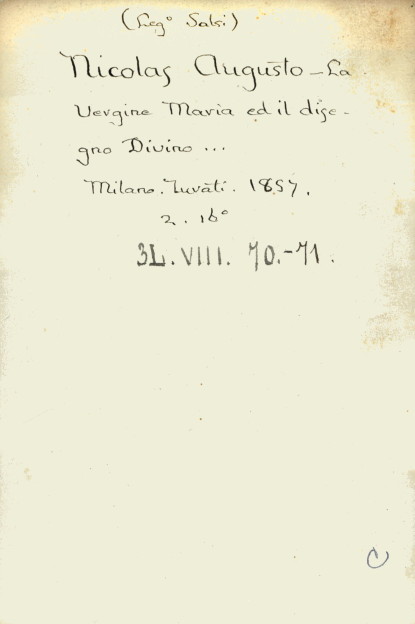 (Leg° Salsi)
Nicolas Augusto - La
Vergine Maria ed il dise-
gno Divino ...
Milano. Turati. 1857.
2. 16°
3L. VIII. 70.-71.